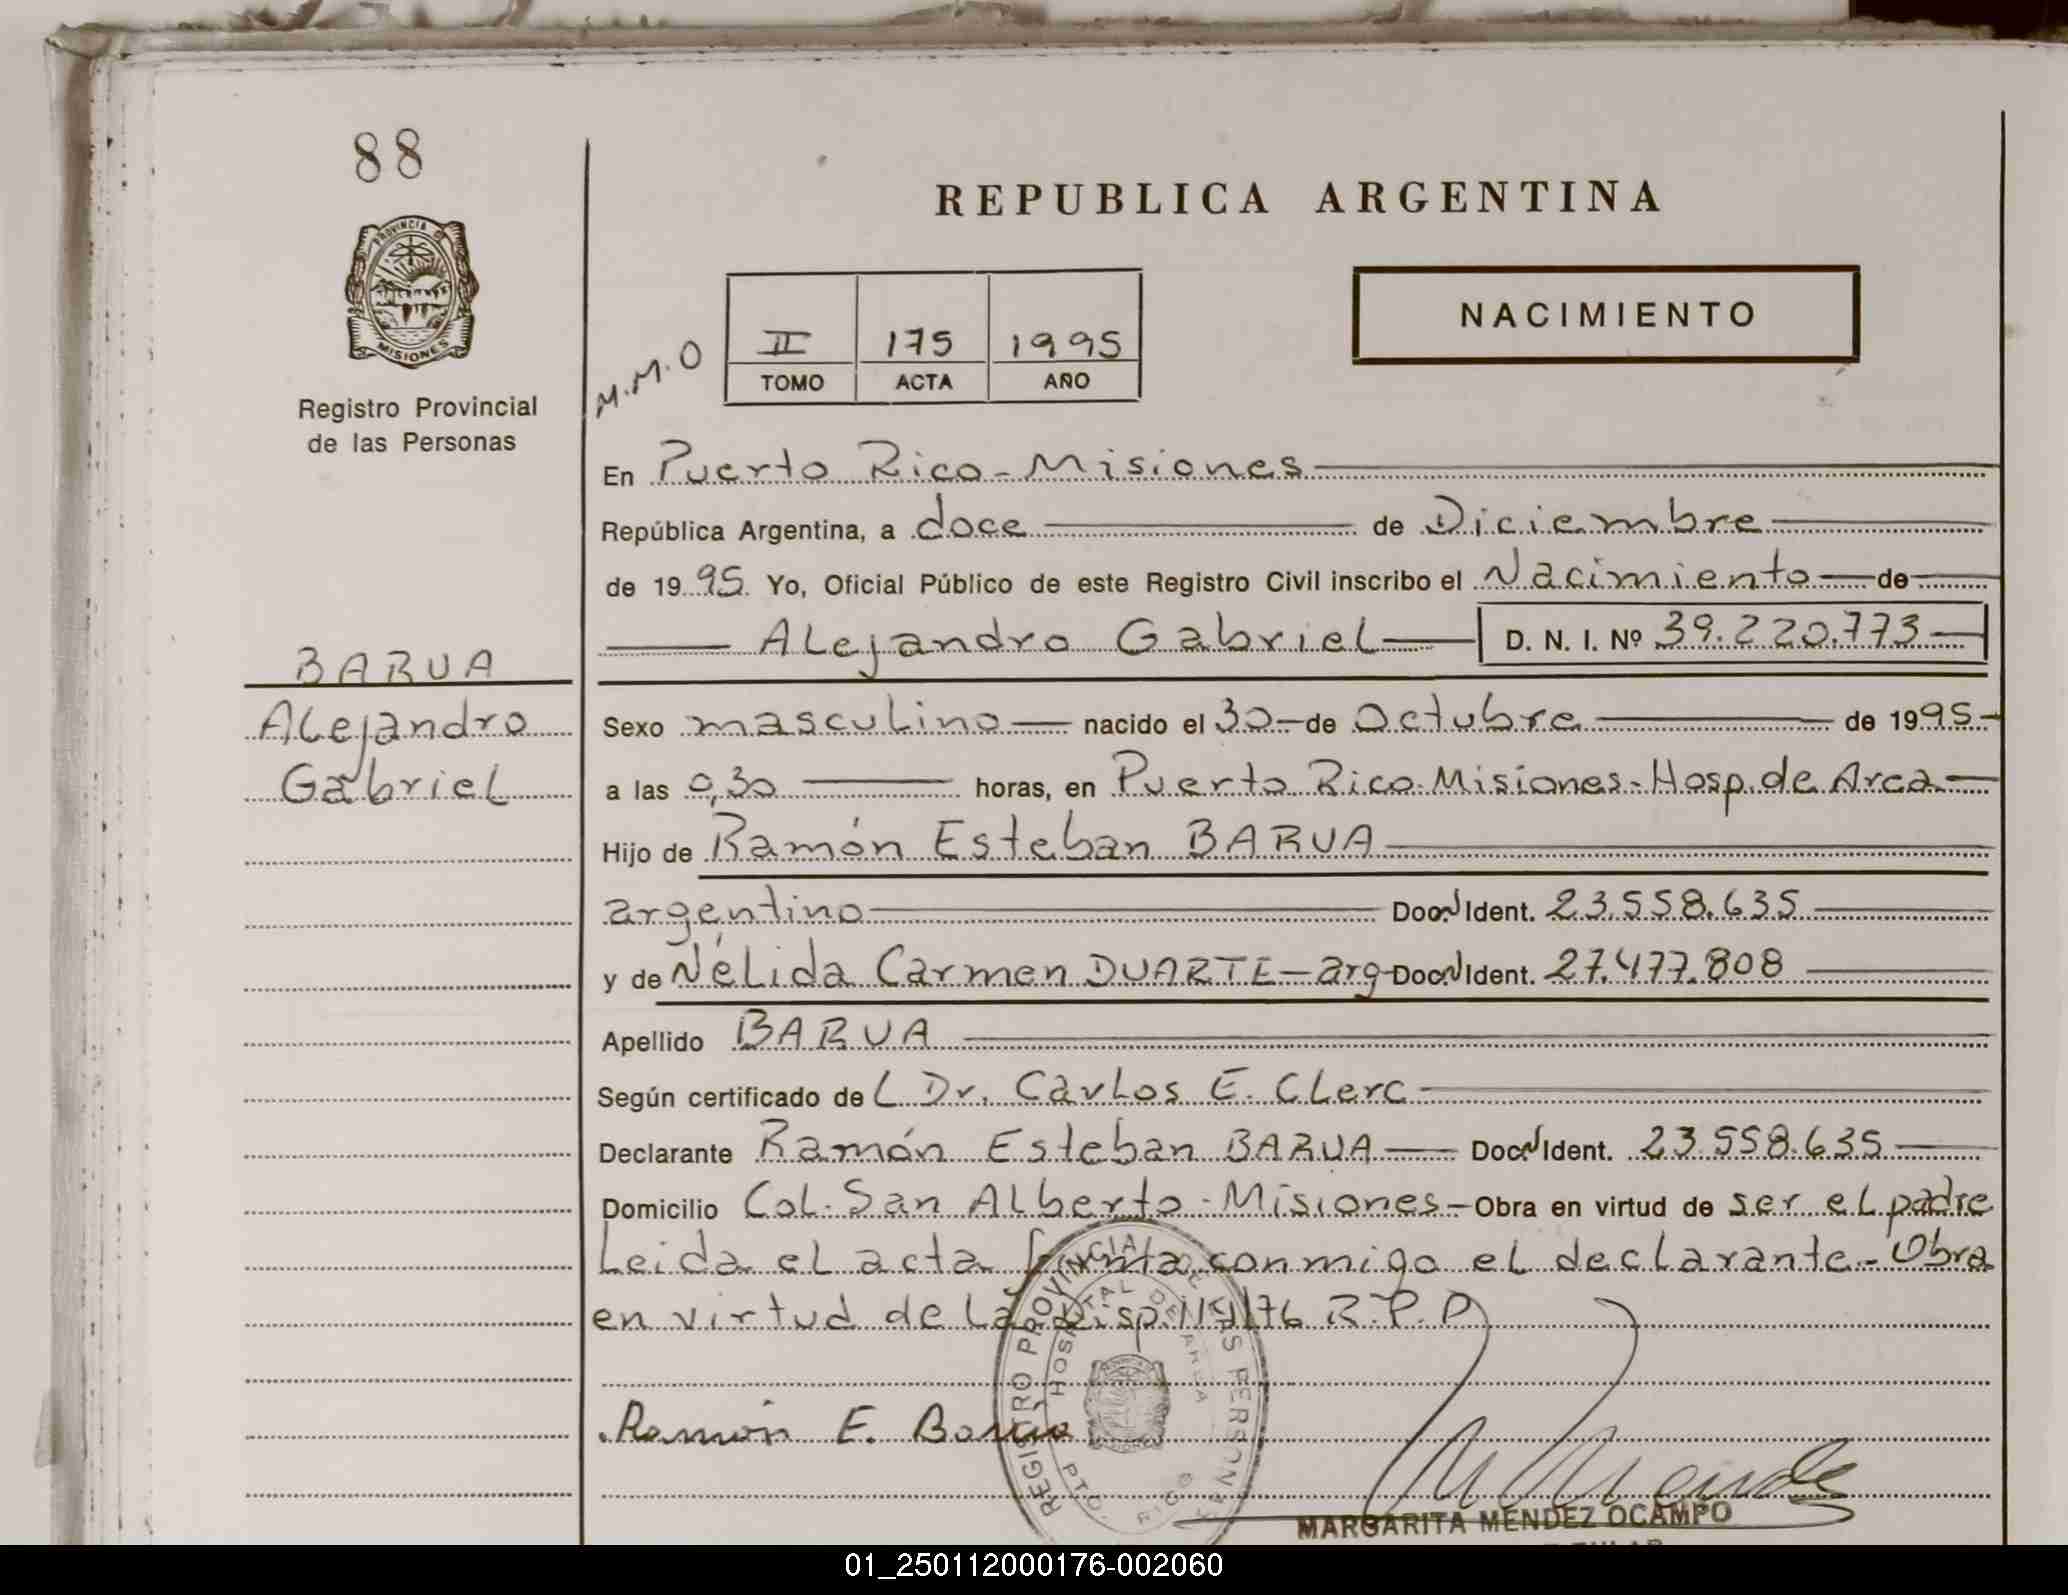 88
PROVINCIA DE
MISIONES
Registro Provincial
de las Personas
BARUA
Alejandro
Gabriel
REPUBLICA ARGENTINA
M.M.O
II 175 1995
TOMO ACTA AÑO
NACIMIENTO
En Puerto Rico - Misiones
República Argentina, a doce de Diciembre
de 1995 Yo, Oficial Público de este Registro Civil inscribo el Nacimiento de
Alejandro Gabriel D. N. I. Nº 39.220.773
Sexo masculino nacido el 30 de Octubre de 1995
a las 0,30 horas, en Puerto Rico-Misiones-Hosp.de Area
Hijo de Ramón Esteban BARUA
argentino Doc. Ident. 23.558.635
y de Nélida Carmen DUARTE - arg Doc. Ident. 27.477.808
Apellido BARUA
Según certificado del Dr. Carlos E. Clerc
Declarante Ramón Esteban BARUA Doc. Ident. 23.558.635
Domicilio Col. San Alberto - Misiones - Obra en virtud de ser el padre
Leida el acta firma conmigo el declarante - Obra
en virtud de la Disp. 119/76 R.P.P
Ramón E. Barua
REGISTRO PROVINCIAL DE LAS PERSONAS
HOSPITAL DE AREA
PTO. RICO
MARGARITA MENDEZ OCAMPO
01_250112000176-002060